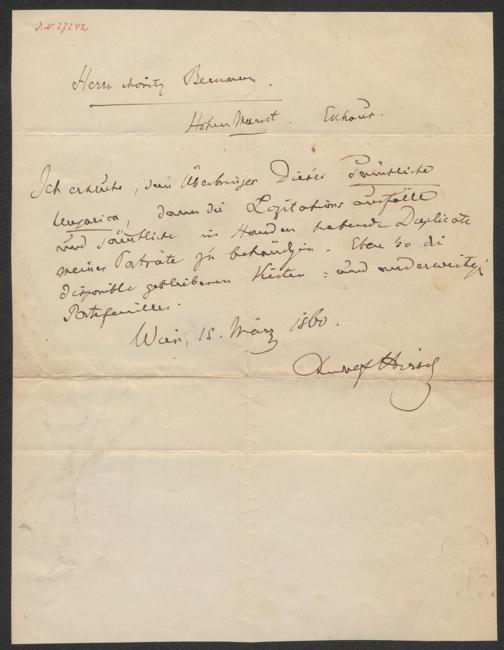 J.N. 27242
Herrn Moritz Bermann.
Hohen Markt. Eckhaus.
Ich ersuche, dem Überbringer dieses sämtliche
Ungarica, dann die Lizitations ausfälle
und sämtliche in Handen habende Duplicate
meiner Porträte zu behändigen. Eben so die
disponible gebliebenen Kisten = und anderweitige
Portefeuilles.
Wien, 15. März 1860.
Hirsch